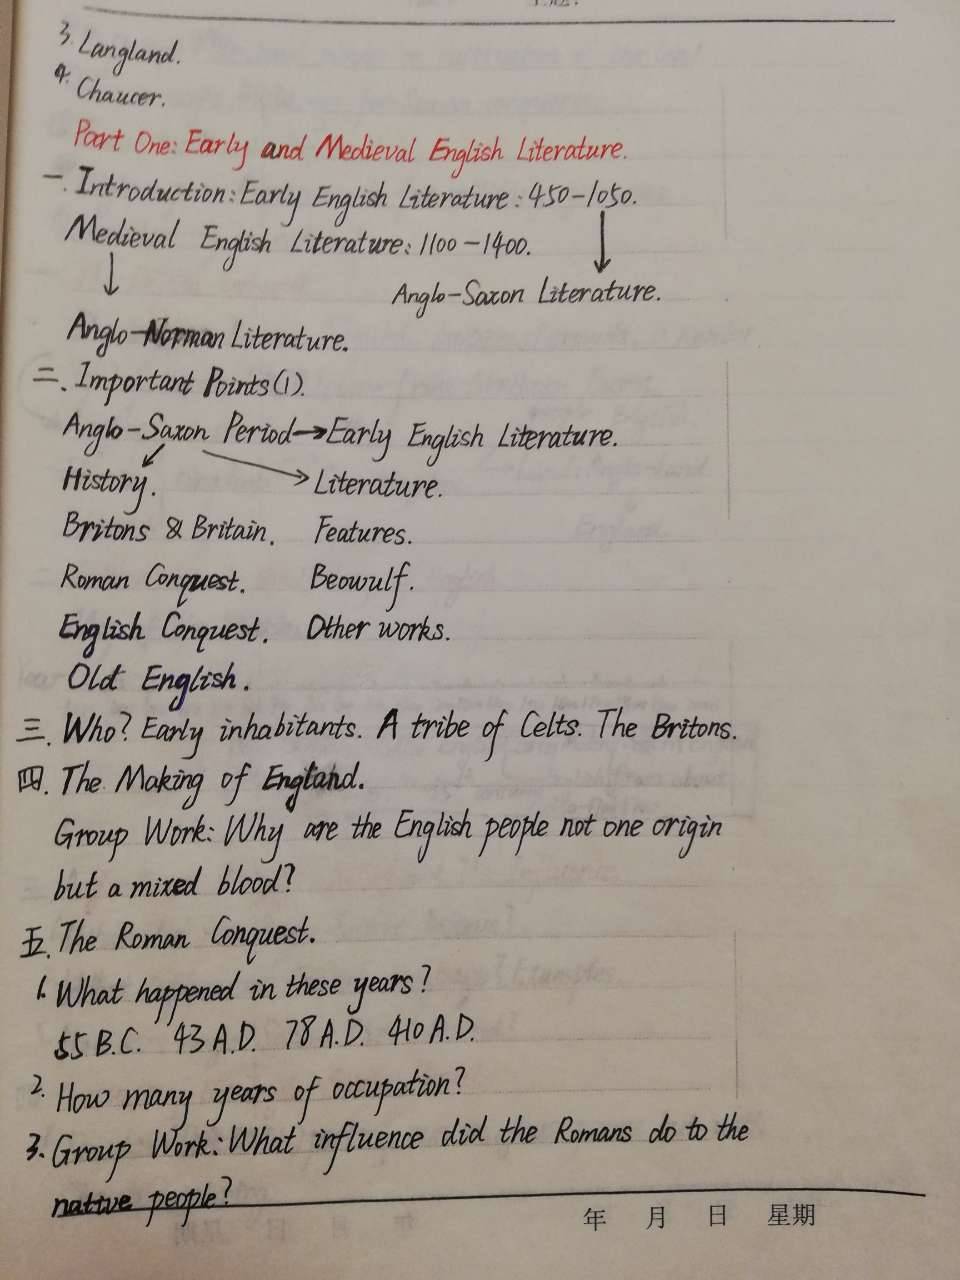 3. Langland.
4. Chaucer.
Part One: Early and Medieval English Literature.
一. Introduction: Early English Literature: 450-1050.
Medieval English Literature: 1100-1400.
Anglo-Saxon Literature.
Anglo-Norman Literature.
二. Important Points(1).
Anglo-Saxon Period→Early English Literature.
History. Literature.
Britons & Britain. Features.
Roman Conquest. Beowulf.
English Conquest. Other works.
Old English.
三. Who? Early inhabitants. A tribe of Celts. The Britons.
四. The Making of England.
Group Work: Why are the English people not one origin
but a mixed blood?
五. The Roman Conquest.
1. What happened in these years?
55 B.C. 43 A.D. 78 A.D. 410 A.D.
2. How many years of occupation?
3. Group Work: What influence did the Romans do to the
native people?
年 月 日 星期